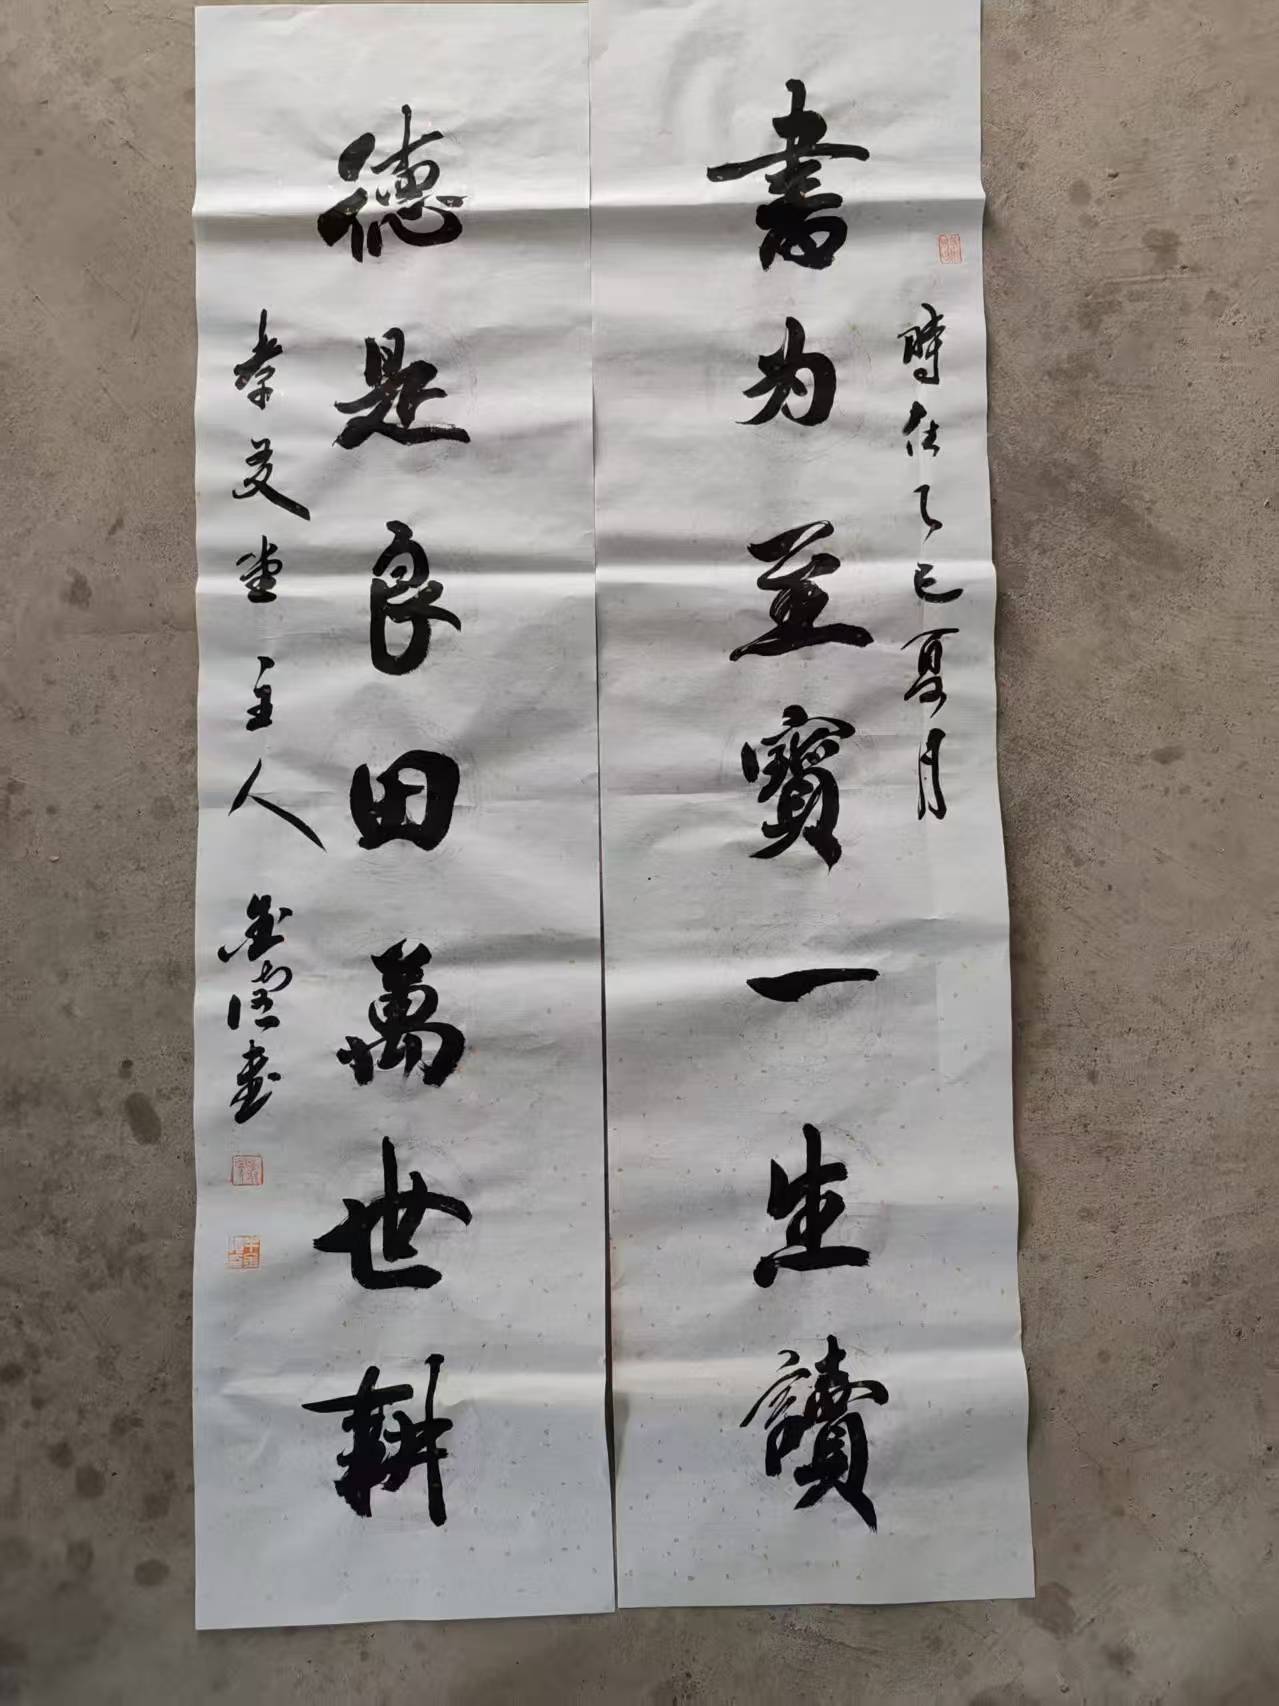 書为至寶一生讀
時在乙巳夏月
德是良田萬世耕
孝友堂主人
書